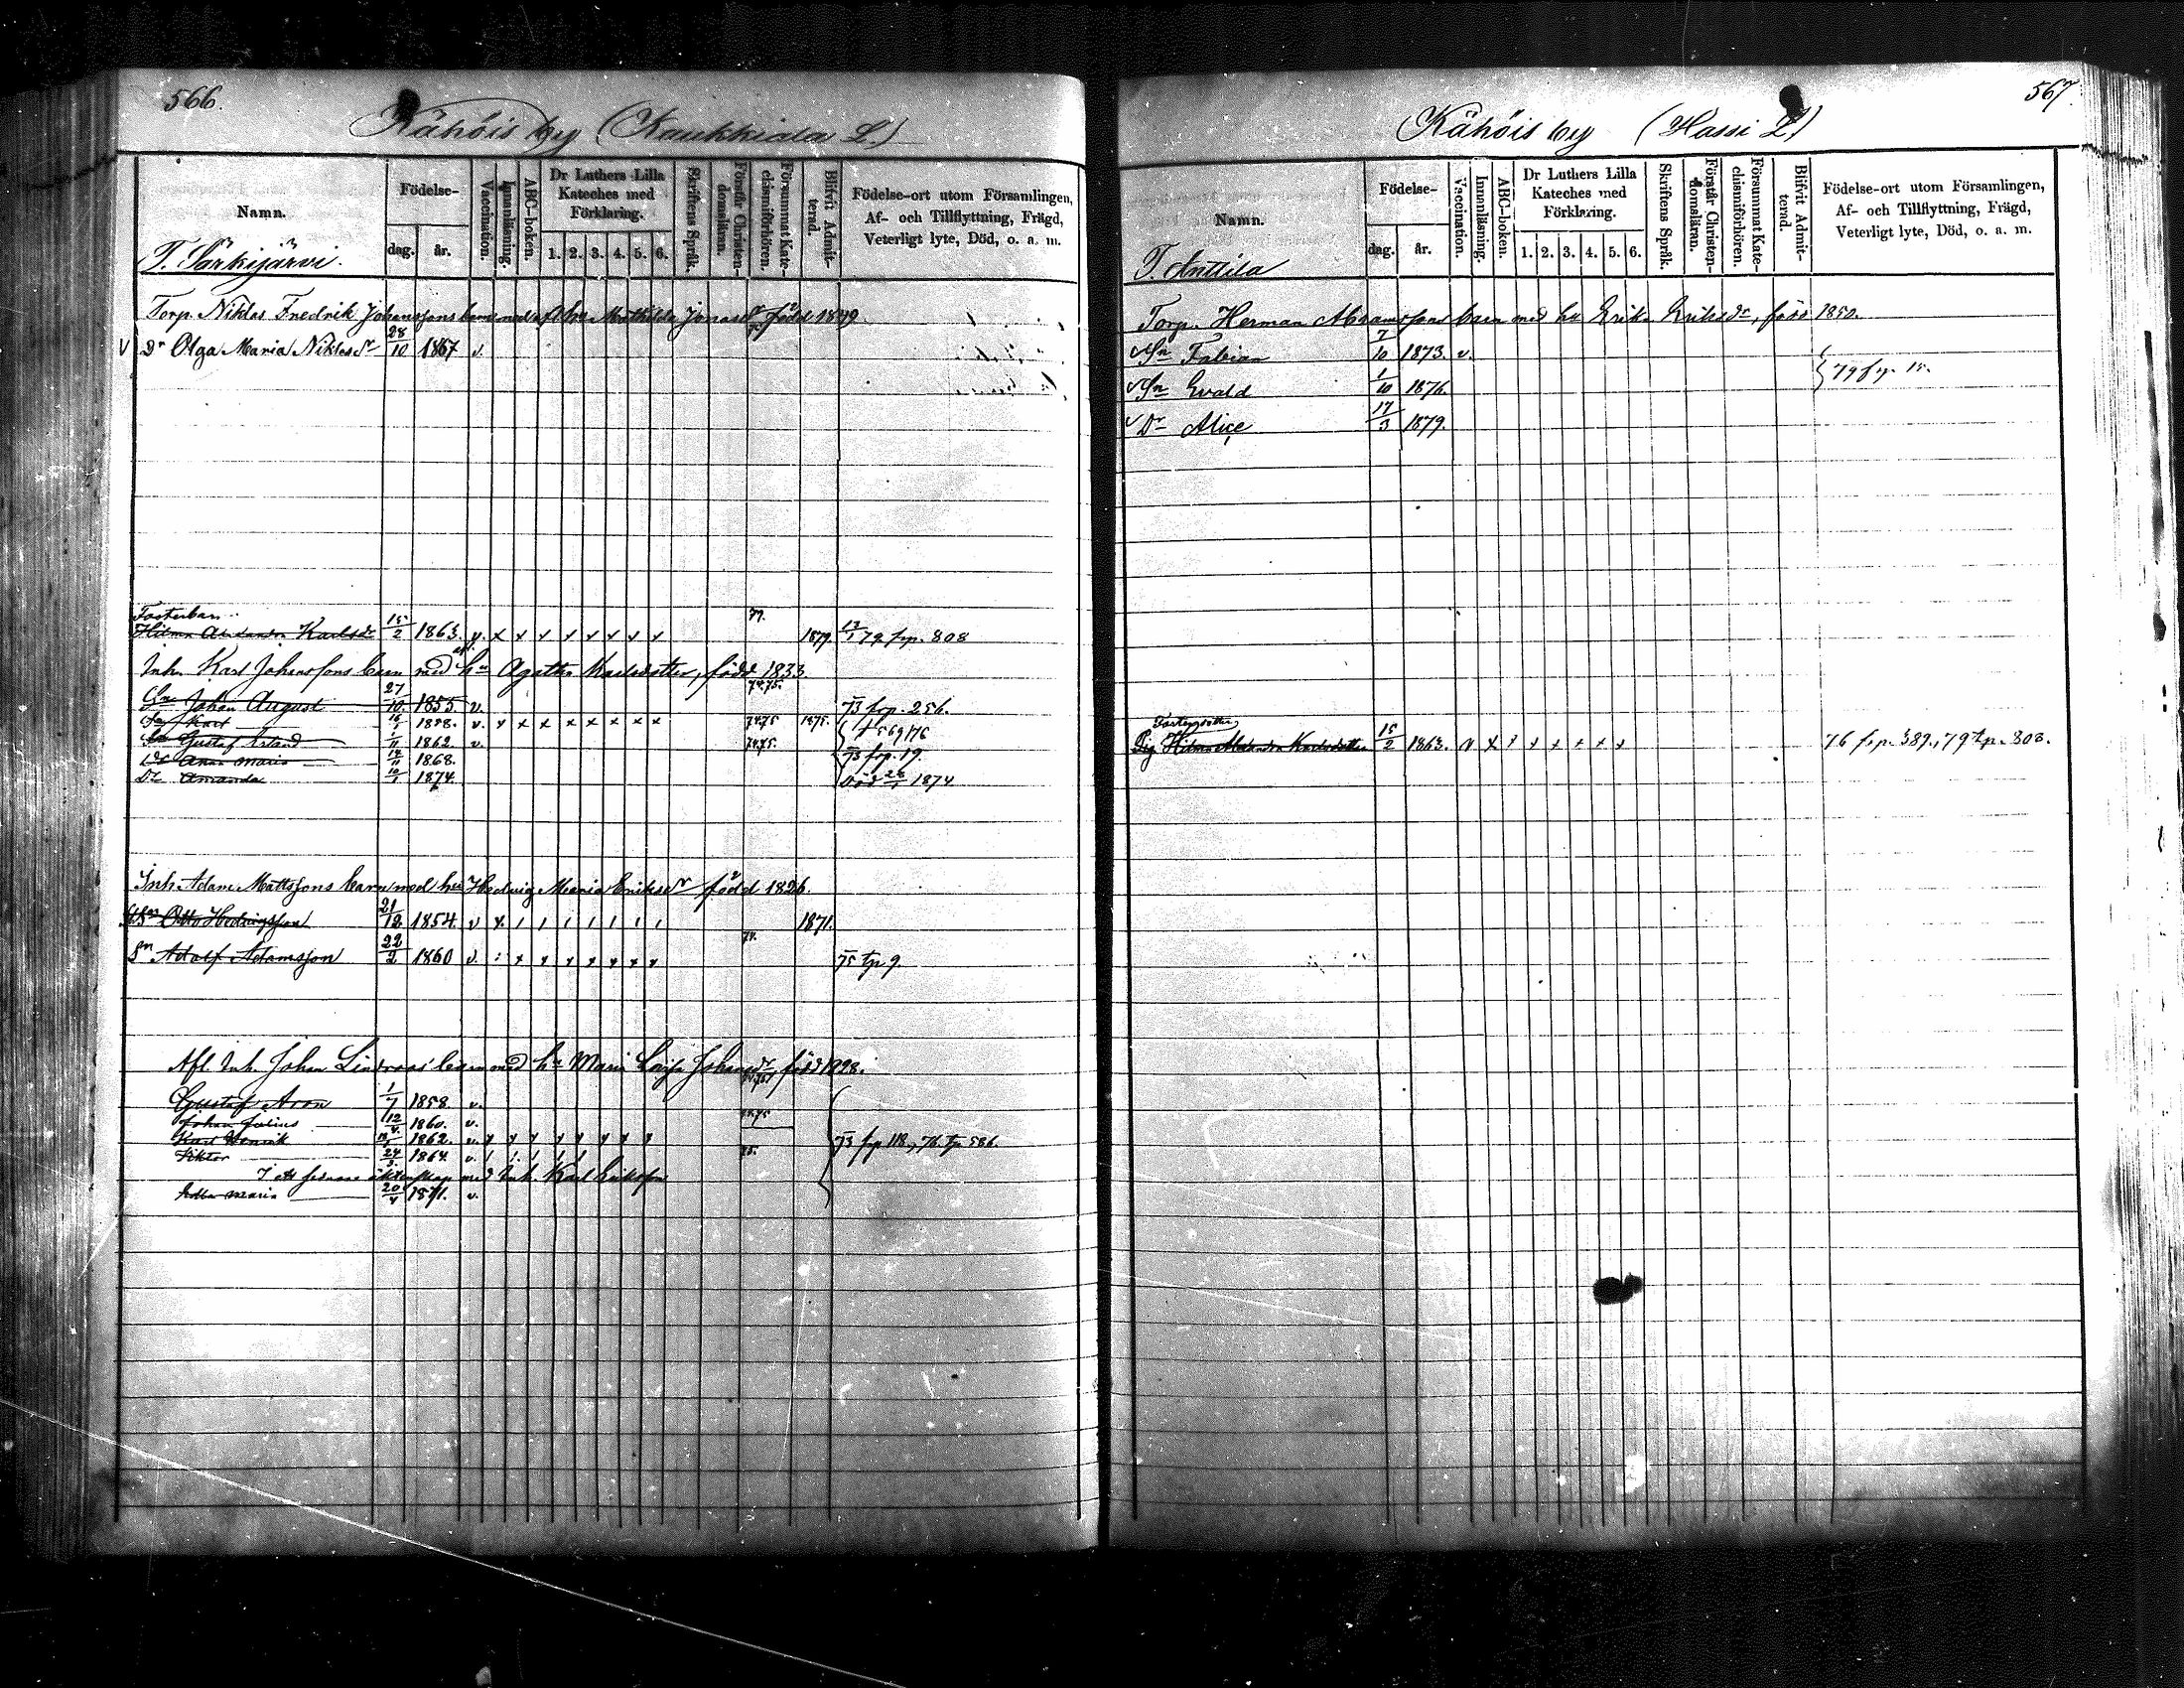 566.
Kähöis by (Kaukkiala L.)
Namn.
Födelse-
dag. år.
Vaccination.
Innanläsning.
ABC-boken.
Dr Luthers Lilla Kateches med Förklaring.
1. 2. 3. 4. 5. 6.
Skriftens Språk.
Förstår Christen-domsläran.
Försummat Kate-chismiförhören.
Blifvit Admit-terad.
Födelse-ort utom Församlingen,
Af- och Tillflyttning, Frägd,
Veterligt lyte, Död, o. a. m.
T. Särkijärvi.
Torp. Niklas Fredrik Johanssons barn med hu Mathilda Jonasdr född
v Dr Olga Maria Niklasdr 28/10 1867 v.
Fosterbarn
Hilma Alexandra Karlsdr 15/2 1863. v. x x x x x x x x 77. 1879. 13/1 79 frp. 808
Inh. Karl Johanssons barn med hu Agatha Karlsdotter, född 1833
Sn Johan August 27/10 1855 v. 74.75. 73 frp. 256.
Sn Karl v. x x x x x x x x 74.75 1875.
Sn Gustaf Erland 1/11 1862. v. 74.75.
Dr Anna Maria 14/11 1868. 73 frp. 19.
Dr Amanda 1874. Död 1874.
Inh. Adam Mattssons barn med hu Hedvig Maria Eriksdr född 1826.
Otto Hedvigsson 21/12 1854. v x 1871.
Sn Adolf Adamsson 22/2 1860 v. : x x x x x x x 74. 75 tp 9.
Afl. Inh. Johan Lindroos' barn med hu Maria Lovisa Johansdr, född
Gustaf Aron 1/7 1858. v.
Johan Julius 1860. v. 74.75
Karl Henrik 1862. v. x x x x x x x x 73 frp 118, 76 tp 586.
Viktor 1864. v. 75.
I ett senare äktenskap med Inh. Karl Eriksson
Maria 20/4 1871. v.
567.
Kähöis by (Hassi L.)
Namn.
Födelse-
dag. år.
Vaccination.
Innanläsning.
ABC-boken.
Dr Luthers Lilla Kateches med Förklaring.
1. 2. 3. 4. 5. 6.
Skriftens Språk.
Förstår Christen-domsläran.
Försummat Kate-chismiförhören.
Blifvit Admit-terad.
Födelse-ort utom Församlingen,
Af- och Tillflyttning, Frägd,
Veterligt lyte, Död, o. a. m.
T. Anttila
Torp. Herman Abramssons barn med hu Erika Eriksdr, född 1850.
v Sn Fabian 7/10 1873. v.
v Sn Evald 1/10 1876. 79 frp. 15.
v Dr Alice 17/3 1879.
Fosterdotter
Pig. Hilma Alexandra Karlsdotter 15/2 1863. v x x x x x x x 76 frp. 389., 79 tp. 808.